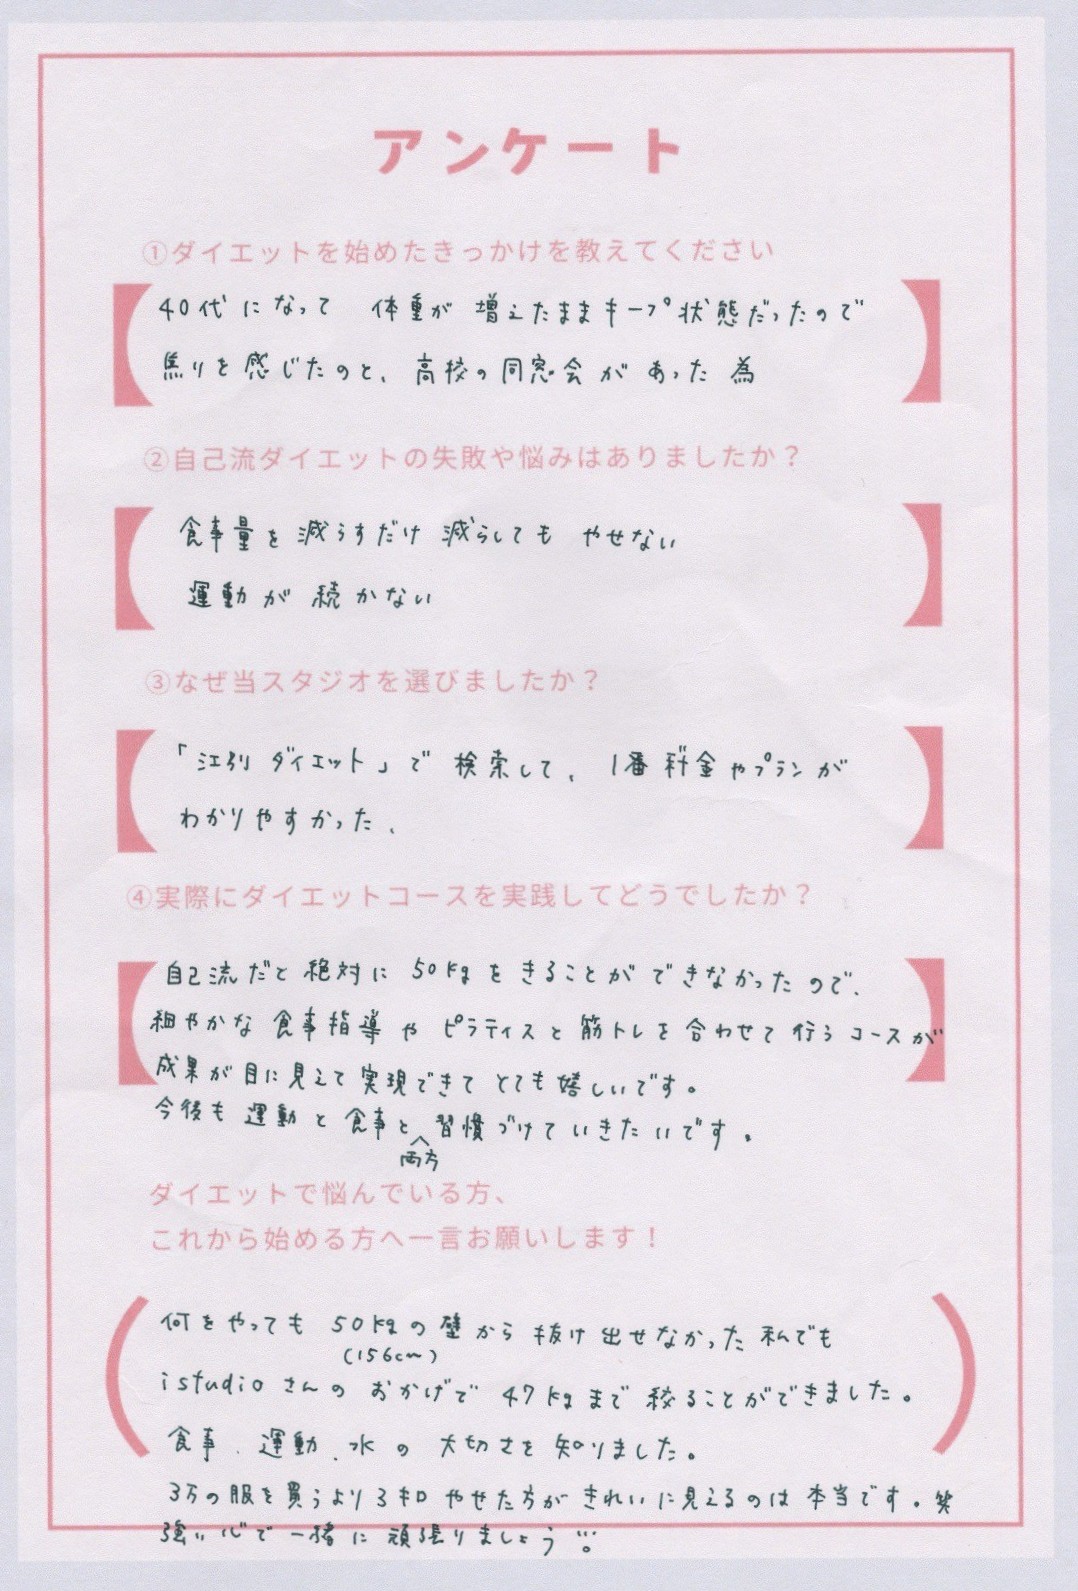 アンケート
①ダイエットを始めたきっかけを教えてください
40代になって 体重が 増えたままキープ状態だったので
焦りを感じたのと、高校の同窓会があった為
②自己流ダイエットの失敗や悩みはありましたか？
食事量を減らすだけ減らしても やせない
運動が続かない
③なぜ当スタジオを選びましたか？
「江別 ダイエット」で検索して、1番料金やプランが
わかりやすかった、
④実際にダイエットコースを実践してどうでしたか？
自己流だと絶対に50kgをきることができなかったので、
細やかな食事指導やピラティスと筋トレを合わせて行うコースが
成果が目に見えて実現できてとても嬉しいです。
今後も運動と食事と習慣づけていきたいです。
両方
ダイエットで悩んでいる方、
これから始める方へ一言お願いします！
何をやっても50kgの壁から抜け出せなかった私でも
(156cm)
istudioさんのおかげで47kgまで絞ることができました。
食事、運動、水の大切さを知りました。
3万の服を買うより3キロやせた方がきれいに見えるのは本当です。笑
強い心で一緒に頑張りましょう!!!